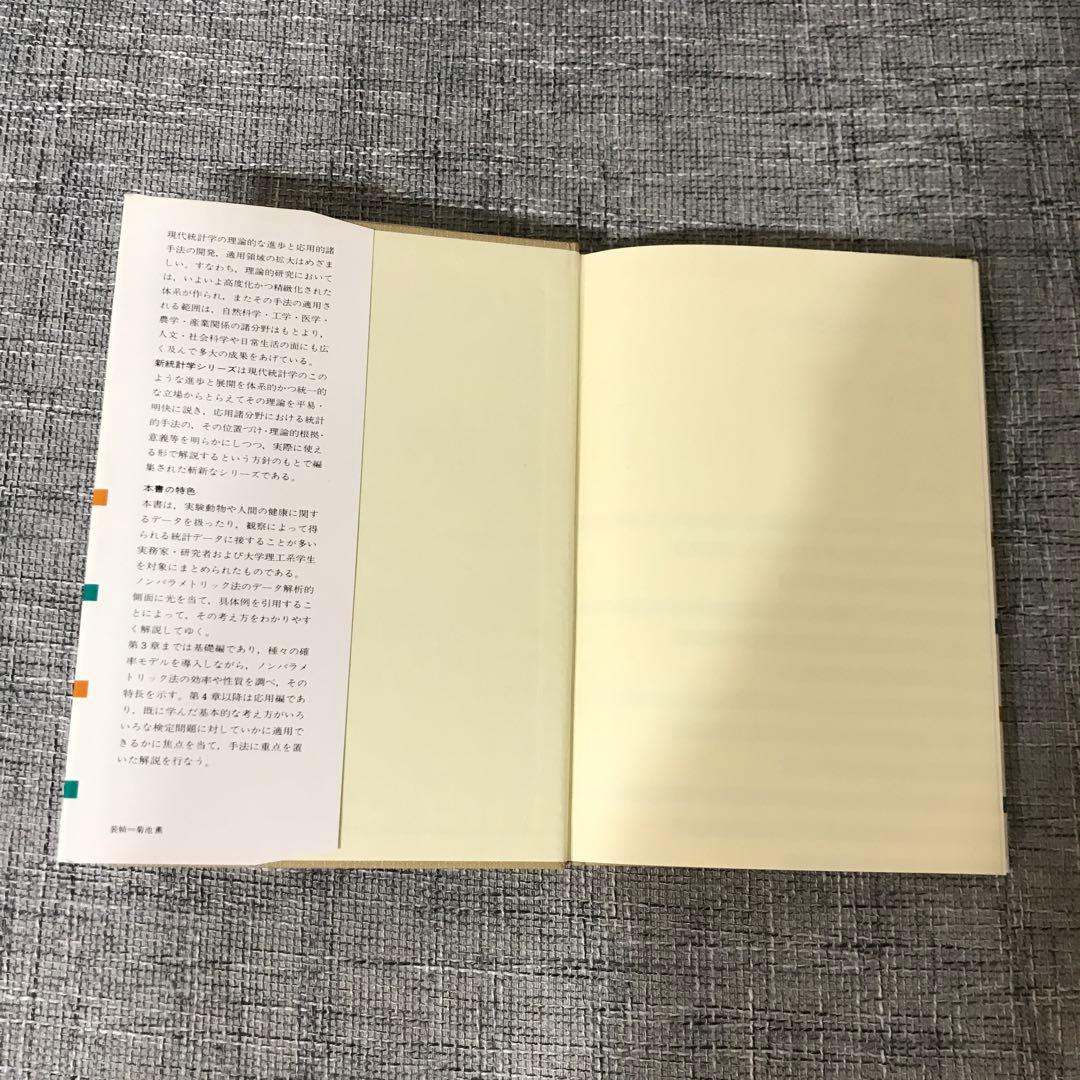 現代統計学の理論的な進歩と応用的諸
手法の開発，適用領域の拡大はめざま
しい。すなわち，理論的研究において
は，いよいよ高度化かつ精緻化された
体系が作られ，またその手法の適用さ
れる範囲は，自然科学・工学・医学・
農学・産業関係の諸分野はもとより，
人文・社会科学や日常生活の面にも広
く及んで多大の成果をあげている。
新統計学シリーズは現代統計学のこの
ような進歩と展開を体系的かつ統一的
な立場からとらえてその理論を平易・
明快に説き，応用諸分野における統計
的手法の，その位置づけ・理論的根拠・
意義等を明らかにしつつ，実際に使え
る形で解説するという方針のもとで編
集された斬新なシリーズである。
本書の特色
本書は，実験動物や人間の健康に関す
るデータを扱ったり，観察によって得
られる統計データに接することが多い
実務家・研究者および大学理工系学生
を対象にまとめられたものである。
ノンパラメトリック法のデータ解析的
側面に光を当て，具体例を引用するこ
とによって，その考え方をわかりやす
く解説してゆく。
第3章までは基礎編であり，種々の確
率モデルを導入しながら，ノンパラメ
トリック法の効率や性質を調べ，その
特長を示す。第4章以降は応用編であ
り，既に学んだ基本的な考え方がいろ
いろな検定問題に対していかに適用で
きるかに焦点を当て，手法に重点を置
いた解説を行なう。
装幀＝菊池 薫